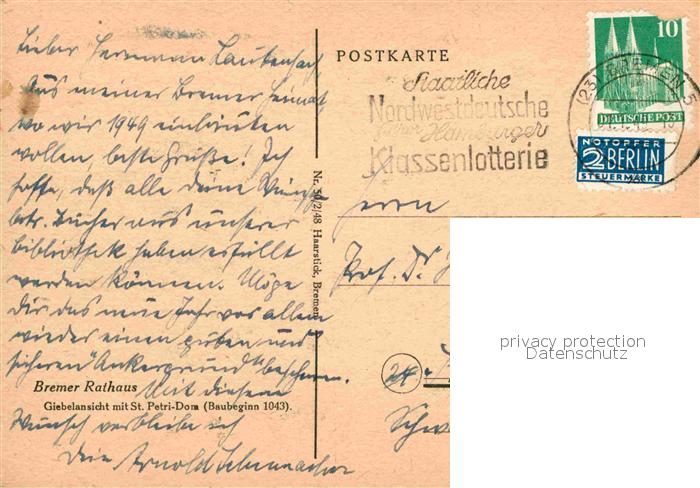 Lieber Hermann Lautensach,
Aus meiner Bremer Heimat,
wo wir 1949 einläuten
wollen, beste Grüße! Ich
hoffe, daß alle deine Wünsche
betr. Bücher aus unserer
Bibliothek haben erfüllt
werden können. Möge
Dir das neue Jahr vor allem
wieder einen guten und
sicheren "Ankergrund" bescheren.
Bremer Rathaus Mit diesem
Giebelansicht mit St. Petri-Dom (Baubeginn 1043).
Wunsch verbleibe ich
Dein Arnold Schumacher
Nr. 50/2/48 Haarstick, Bremen
POSTKARTE
Staatliche
Nordwestdeutsche
vor Hamburger
Klassenlotterie
10
DEUTSCHE POST
(23) BREMEN 5
NOTOPFER
2 BERLIN
STEUERMARKE
Herrn
Prof. Dr. H
24
Schw
privacy protection
Datenschutz